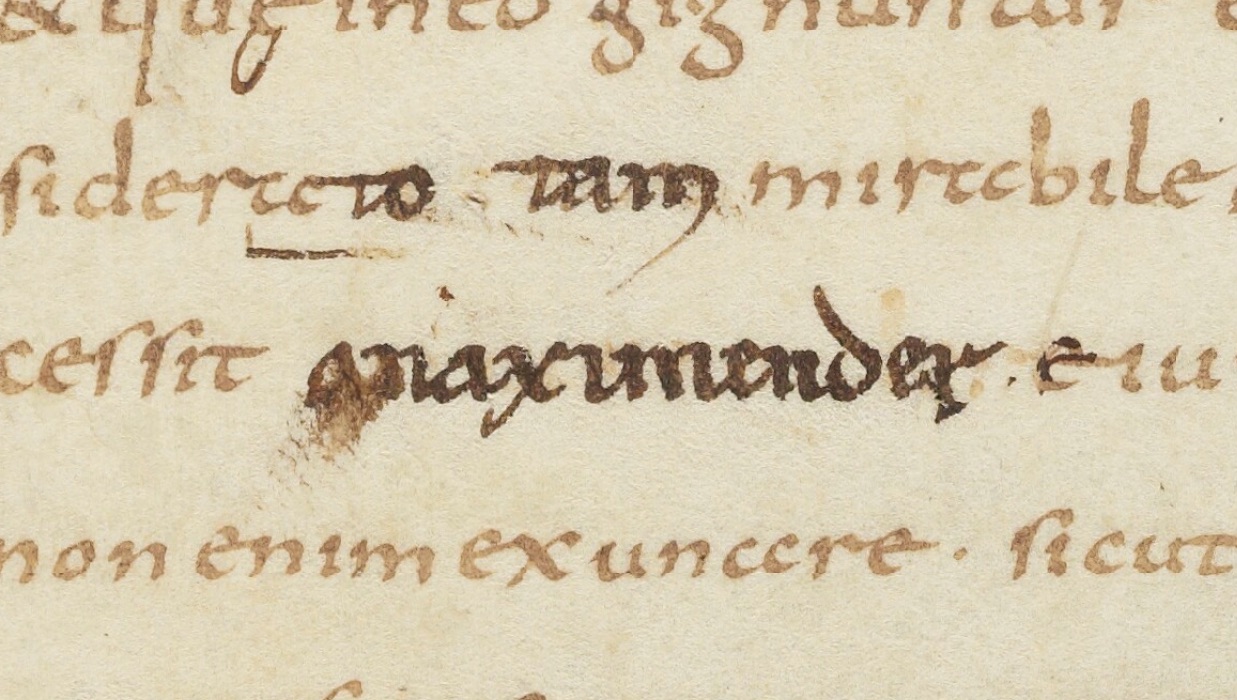 & quę in eo gignuntur
siderato tam mirabile
cessit anaximender · eiu
non enim ex una re · sicut